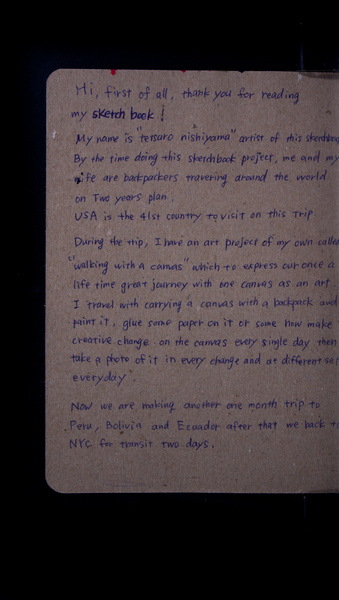 Hi, first of all, thank you for reading
my sketch book !
My name is "tetsuro nishiyama" artist of this
By the time doing this sketchbook project, me and my
wife are backpackers travering around the world
on Two years plan.
USA is the 41st country to visit on this Trip
During the trip, I have an art project of my own
"walking with a canvas" which to express our once a
life time great journey with one canvas as an art.
I travel with carrying a canvas with a backpack and
paint it, glue some paper on it or some how make
creative change on the canvas every single day then
take a photo of it in every change and at different
everyday".
Now we are making another one month trip to
Peru, Bolivia and Ecuador after that we back
NYC for transit two days.